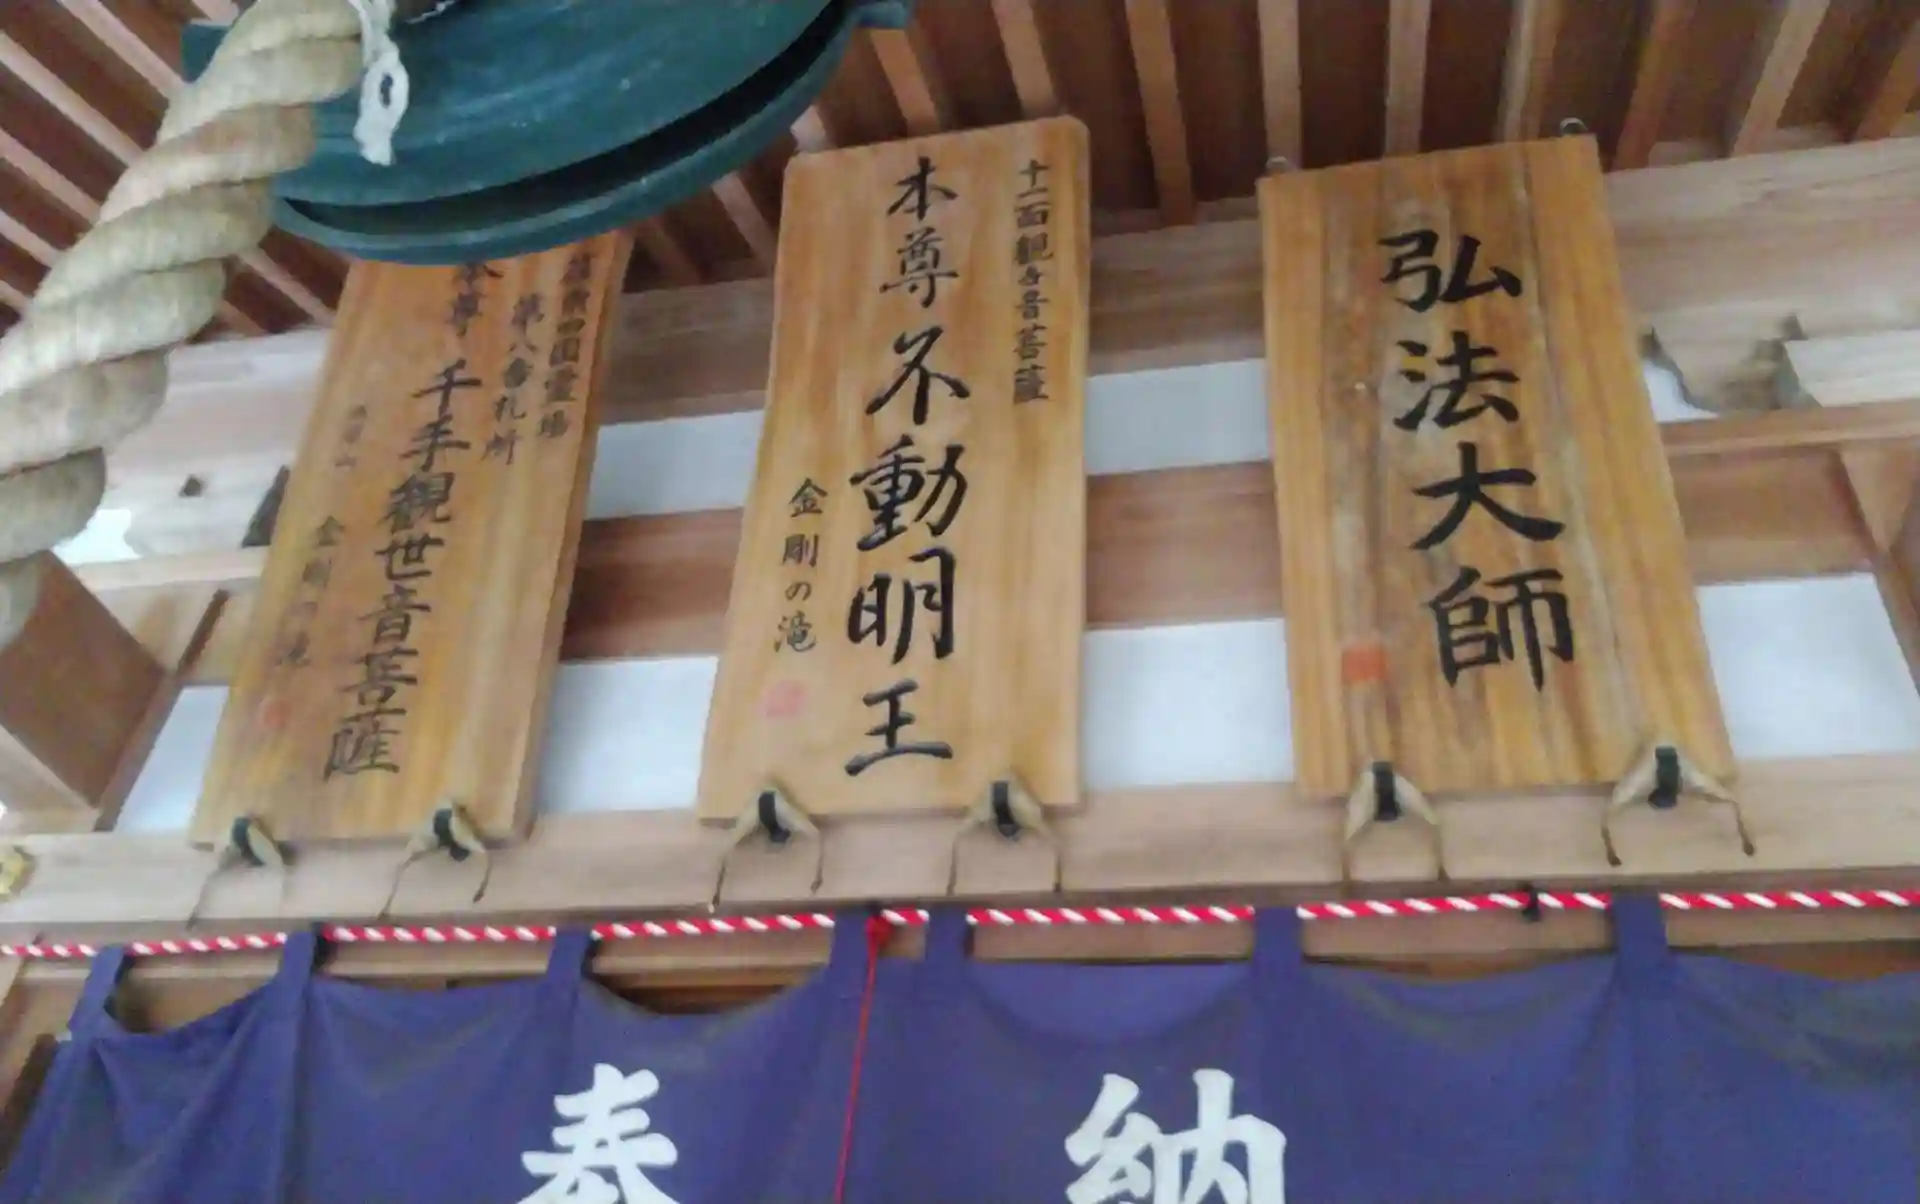 弘法大師
十一面観世音菩薩
本尊不動明王
金剛の滝
四国霊場
第八番札所
本尊 千手観世音菩薩
金剛の滝
奉納